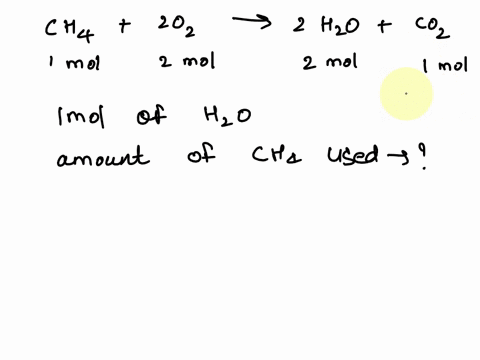 CH4 + 2O2 → 2 H2O + CO2
1 mol 2 mol 2 mol 1 mol
1mol of H2O
amount of CH4 used → ?